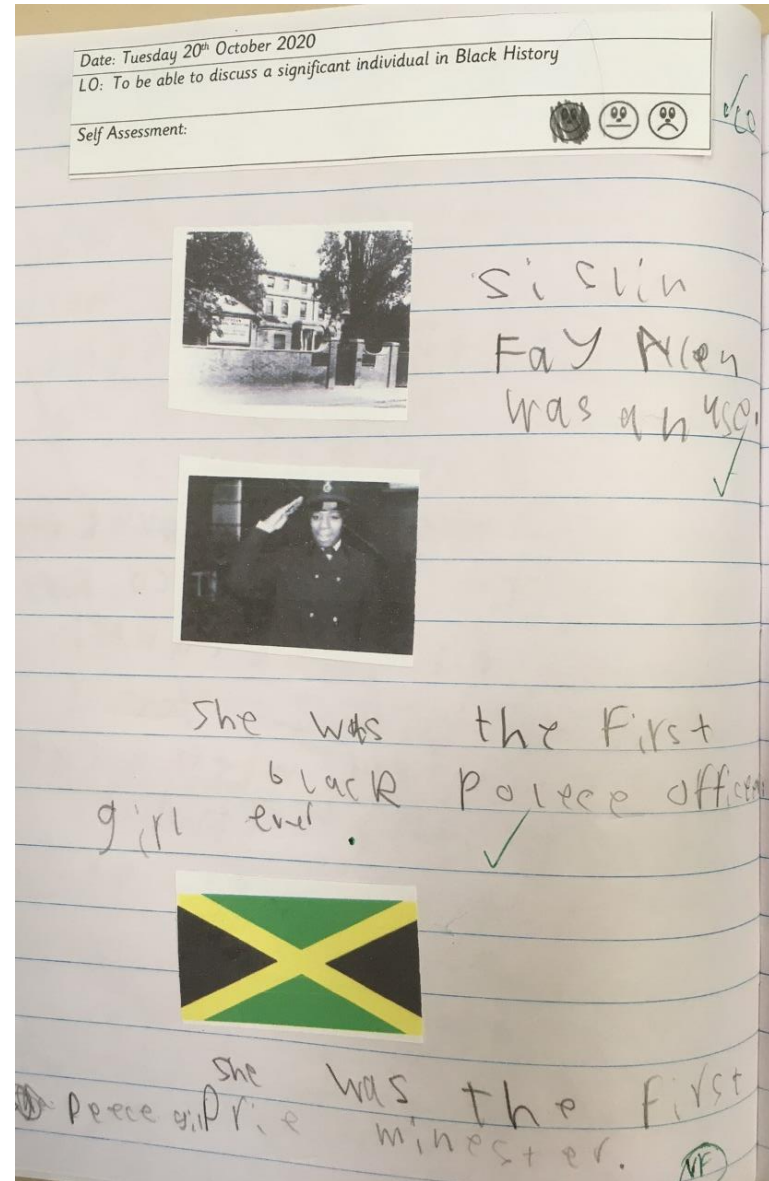 Date: Tuesday 20th October 2020
LO: To be able to discuss a significant individual in Black History
Self Assessment:
Sislin
Fay Allen
was a nuse.
she was the First
black Poleece officer
girl ever.
she was the first
Peece girl Prie minester.
VF